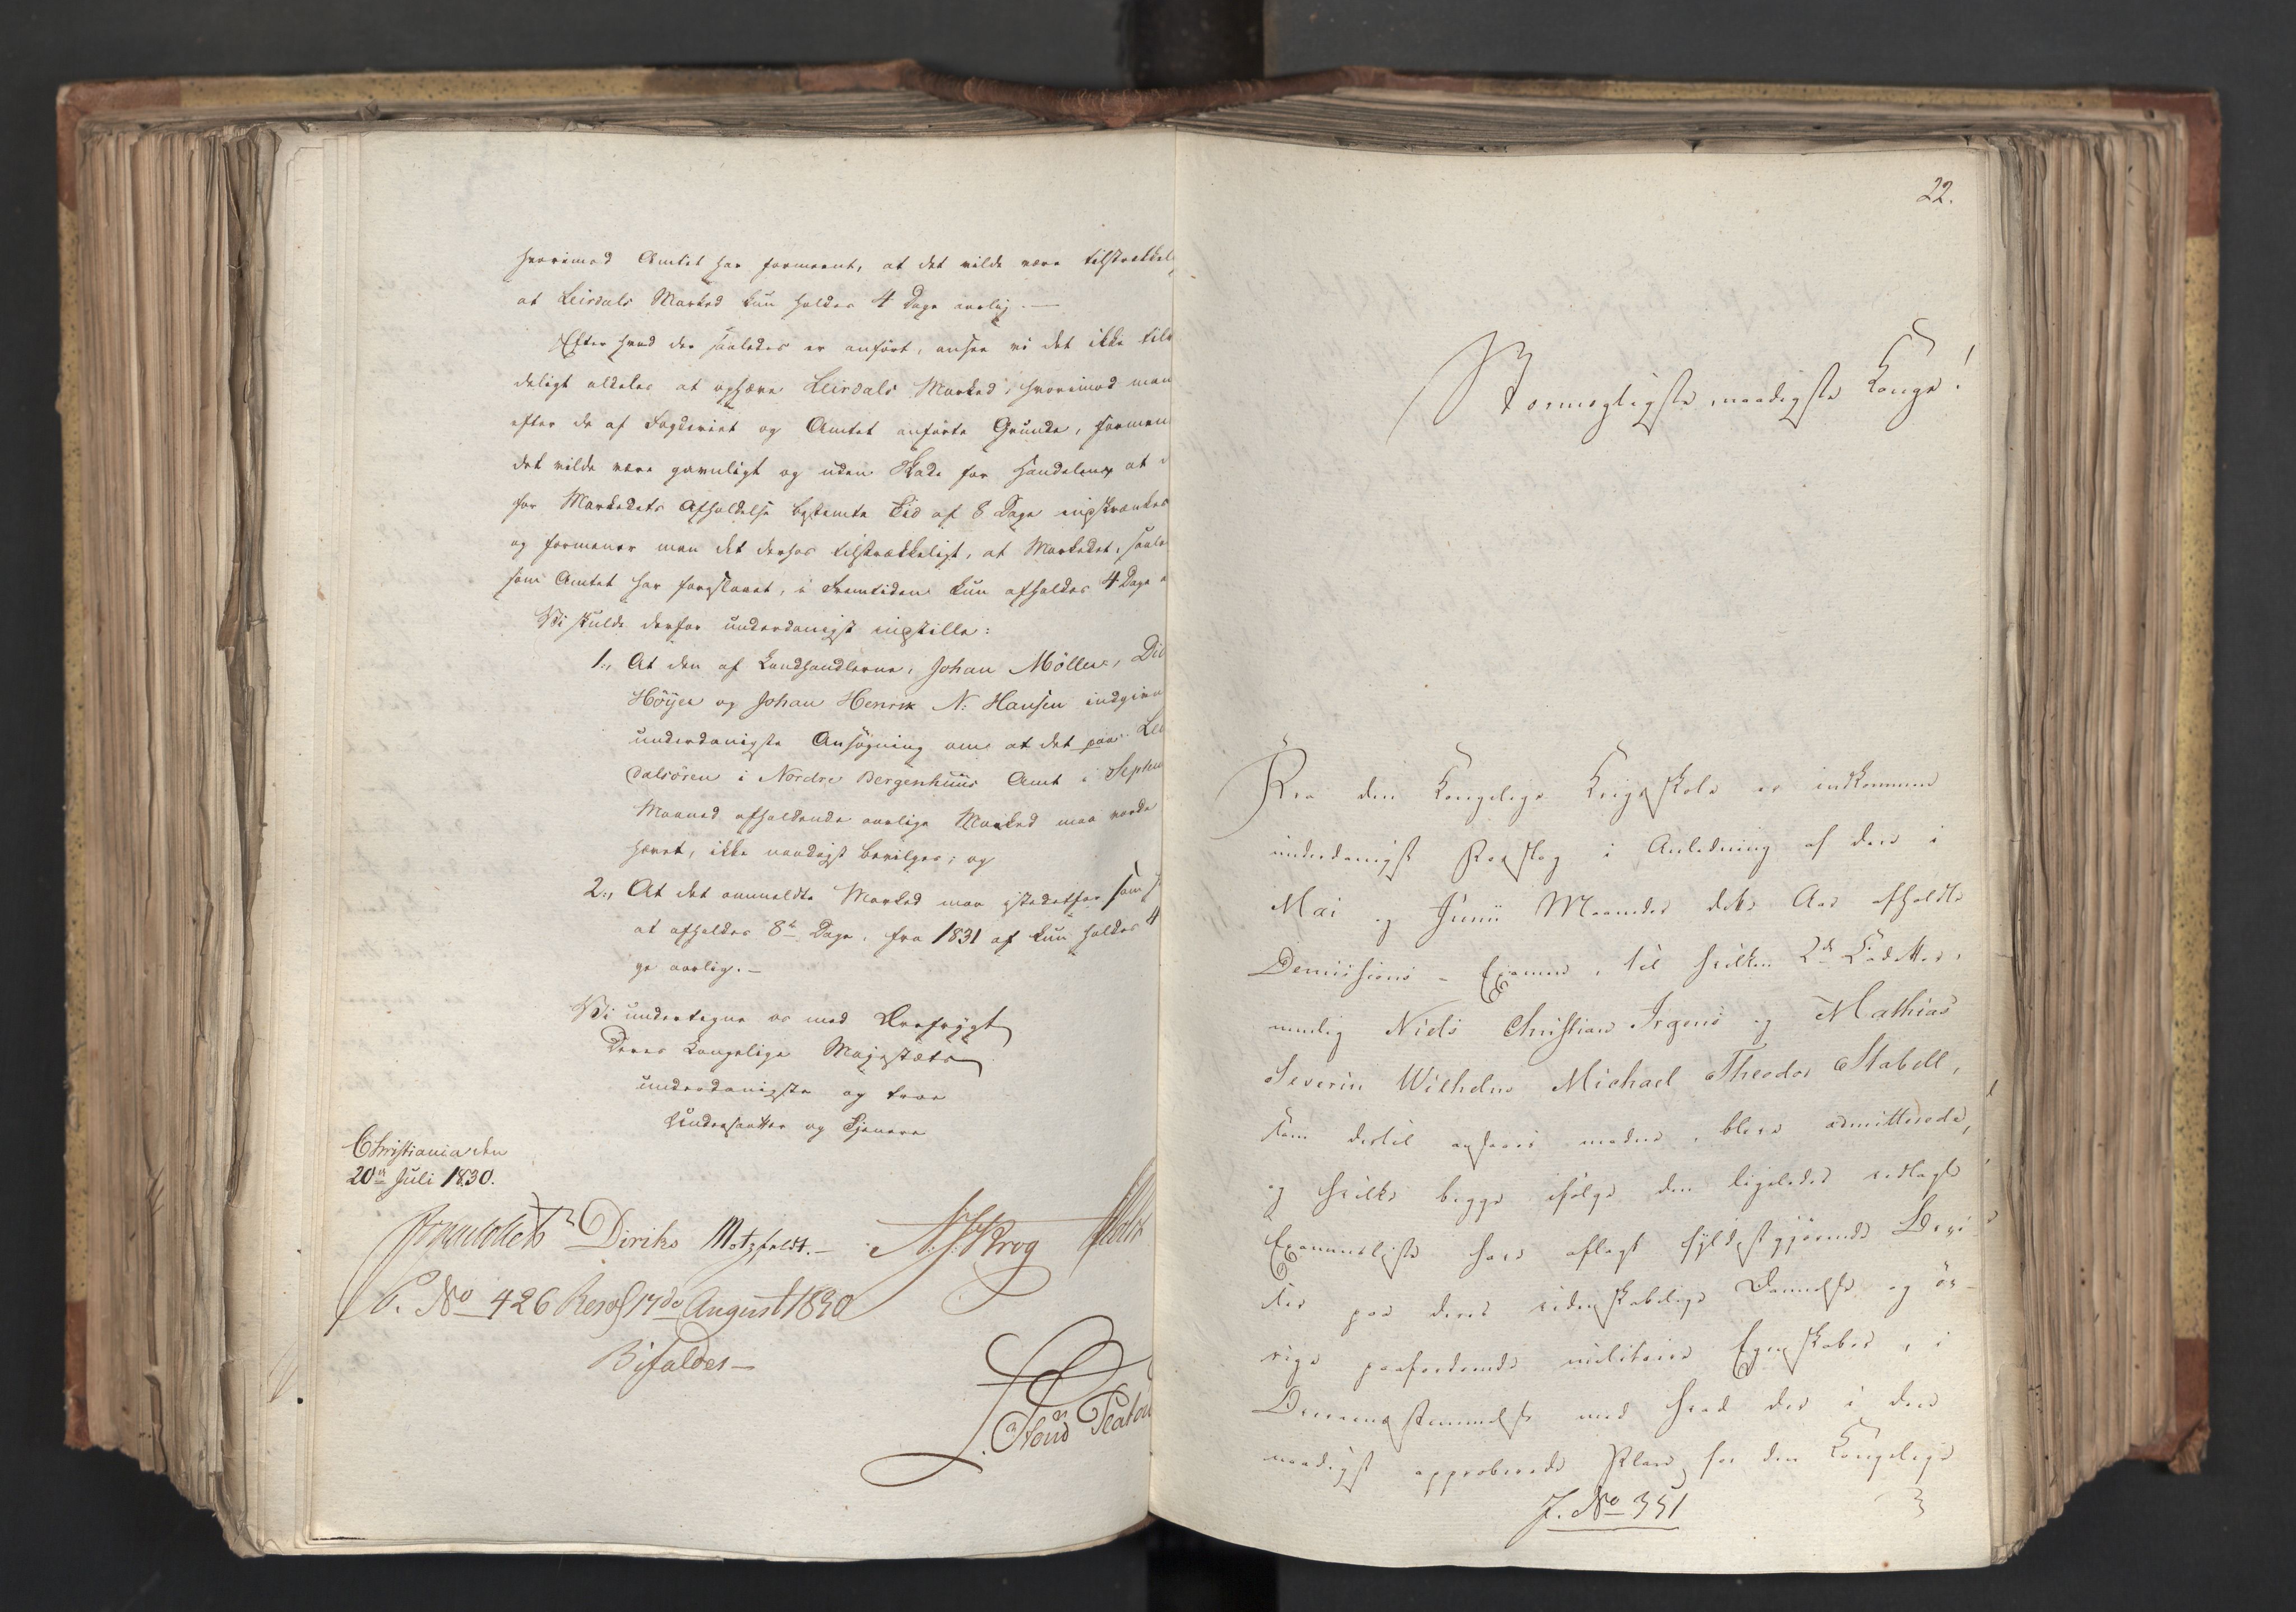 hvorimod Amtet har formeent, at det vilde være tilstrækkel
at Leirdals Marked kun holdes 4 Dage aarlig. —
Efter hvad der saaledes er anført, ansee vi det ikke tilr
deligt aldeles at ophæve Leirdals Marked, hvorimod man
efter de af Fogderiet og Amtet anførte Grunde, formen
det vilde være gavnligt og uden Skade for Handelen, at d
for Markedets Afholdelse bestemte Tid af 8 Dage inskrænkes
og formener man det derhos tilstrækkeligt, at Markedet, saale
som Amtet har foreslaaet, i Fremtiden kun afholdes 4 Dage a
Vi skulde derfor underdanigst instille:
1., At den af Landhandlerne, Johan Möller, Did
Höÿer og Johan Henrik N: Hansen indgivne
underdanigste Ansøgning om at det paa Lei
dalsören i Nordre Bergenhuus Amt i Septem
Maaned afholdende aarlige Marked maa vorde
hævet, ikke naadigst bevilges; og
2., At det anmeldte Marked maa istedetfor som h
at afholdes 8te Dage, fra 1831 af kun holdes 4
ge aarlig. —
Vi undertegne os med Ærefrygt
Deres Kongelige Majestæts
underdanigste og troe
Undersaatter og Tjenere
Christiania den
20de Juli 1830.
Diriks Motzfeldt. — N. J. Krog Holst
P. No 426 Resol 17de August 1830
Bifaldes —
22.
Stormægtigste, naadigste Konge!
Fra den Kongelige Krigsskole er indkommen
underdanigst Forslag i Anledning af den i
Mai og Junii Maaneder dette Aar afholdte
Demissions-Examen, til hvilken 2de Cadetter,
nemlig Niels Christian Irgens og Mathias
Severin Wilhelm Michael Theodor Stabell,
som dertil ansees modne, bleve admitterede,
og hvilke begge ifølge den ligeledes vedlagte
Examensliste have aflagt fyldestgjørende Bevi
ser paa deres videnskabelige Dannelse og öv-
rige paafordrende militaire Egenskaber, i
Overensstemmelse med hvad der i den
naadigst approberede Plan for den Kongelige
J. No 351